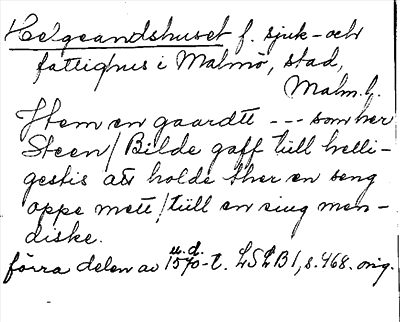 Helgeandshuset f. sjuk- och
fattighus i Malmö, stad,
Malm. h.
Item en gaardtt --- som her
Steen / Bilde gaff tiill helli-
gestis att holde ther en seng
oppe mett / tiill en siug men-
diske.
u.d.
förra delen av 1570-t. LSLB 1, s. 468. orig.